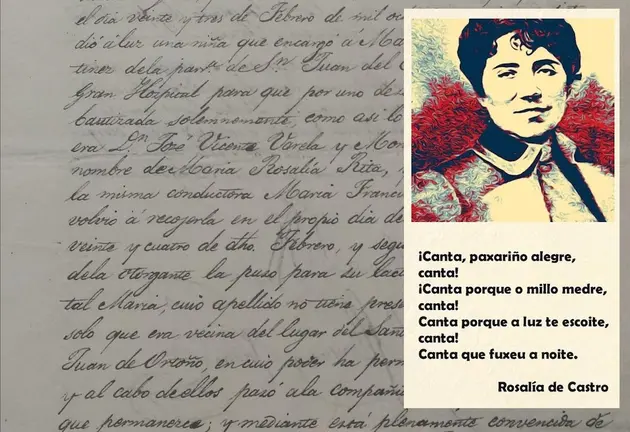 el dia veinte y tres de Febrero de mil oc
dió á luz una niña que encargó á Ma
tinez dela parr.ª de Sn. Juan del C
Gran Hospital para que por uno de
bautizada solemnemente, como asi lo
era Dn. José Vicente Varela y Mon
nombre de Maria Rosalia Rita,
la misma conductora Maria Franci
volvió á recojerla en el propio dia de
veinte y cuatro de dho. Febrero, y segu
dela otorgante la puso para su lac
tal Maria, cuio apellido no tiene prese
solo que era vecina del lugar del San
Juan de Ortoño, en cuio poder ha perm
y al cabo de ellos pasó ala compañi
que permanerce; y mediante está plenamente convencida de
¡Canta, paxariño alegre,
canta!
¡Canta porque o millo medre,
canta!
Canta porque a luz te escoite,
canta!
Canta que fuxeu a noite.
Rosalía de Castro